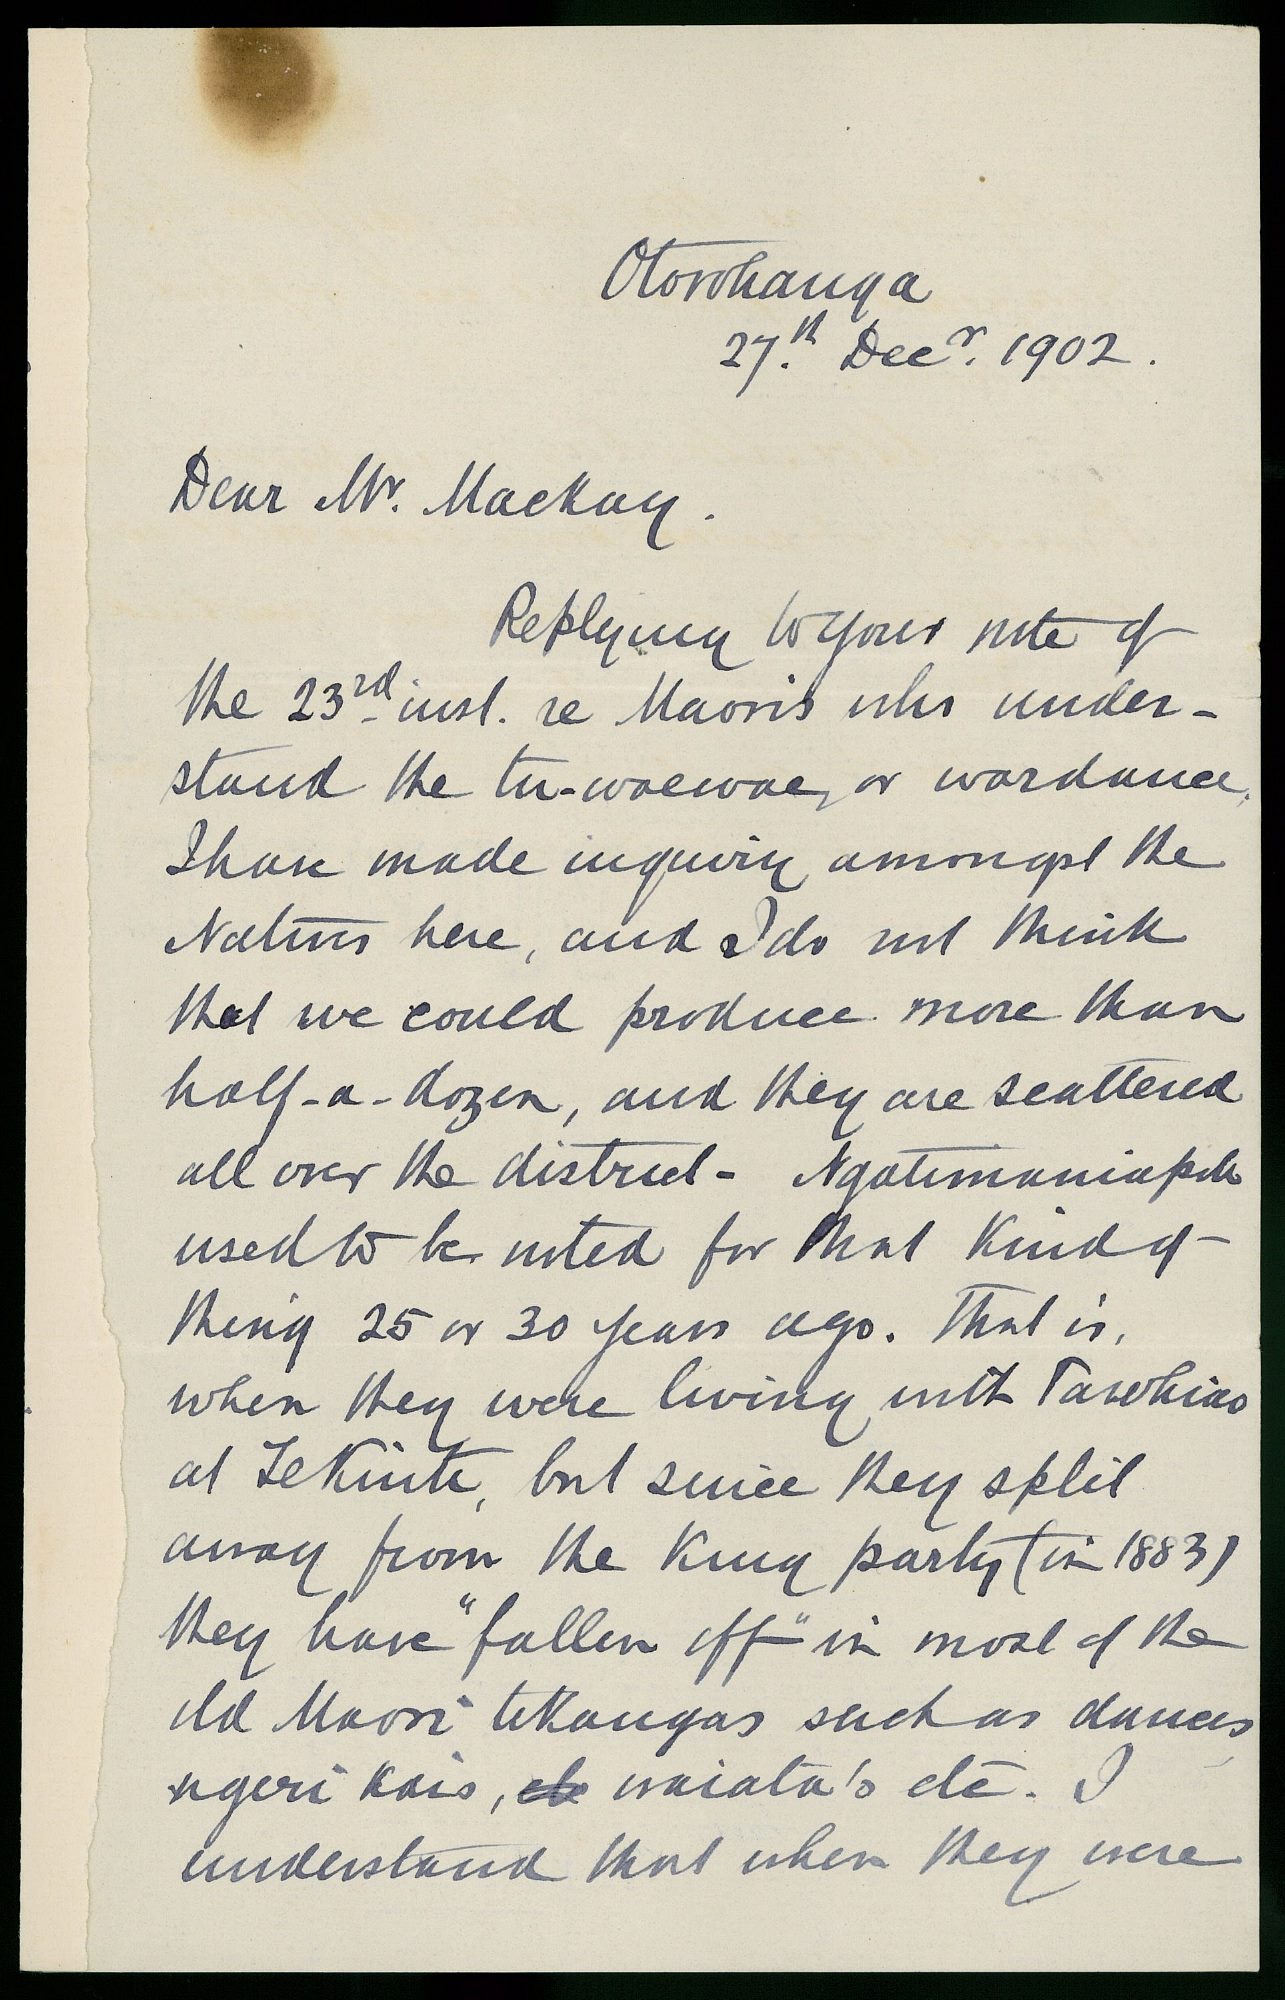 Otorohanga
27th. Decr. 1902.
Dear Mr. Mackay.
Replying to your note of
the 23rd inst. re Maoris who under-
stand the tu-waewae, or wardance,
I have made inquiry amongst the
Natives here, and I do not think
that we could produce more than
half-a-dozen, and they are scattered
all over the district - Ngatimaniapoto
used to be noted for that kind of
thing 25 or 30 years ago. That is,
when they were living with Tawhiao
at Te Kuiti, but since they split
away from the King party (in 1883)
they have "fallen off" in most of the
old Maori tikangas such as dances
ngeri kais, waiata's etc. I
understand that when they were